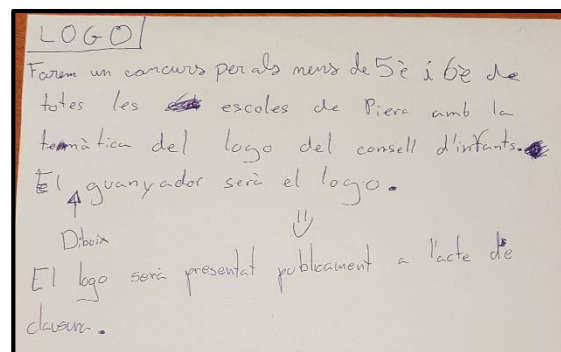 LOGO
Farem un concurs per als nens de 5è i 6è de
totes les escoles de Piera amb la
temàtica del logo del consell d'infants.
El guanyador serà el logo.
Dibuix
El logo serà presentat publicament a l'acte de
clausura.